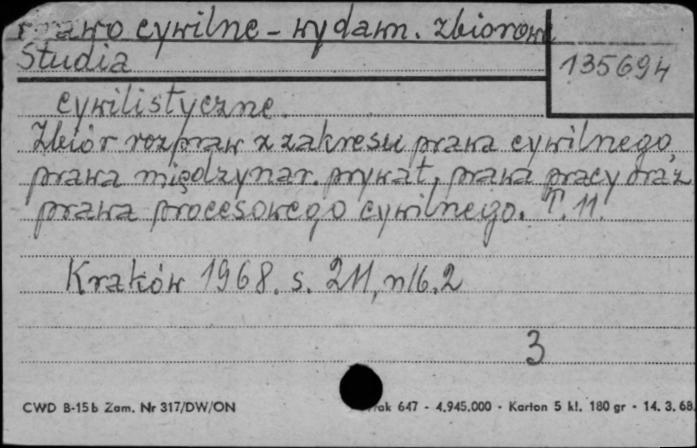 prawo cywilne - wydawn. zbiorowe
Studia
135694
cywilistyczne.
Zbiór rozpraw z zakresu prawa cywilnego,
prawa międzynar. prywat, prawa pracy oraz
prawa procesowego cywilnego. T. 11.
Kraków 1968. s. 211, nlb. 2
3
CWD B-15b Zam. Nr 317/DW/ON
647 - 4.945.000 - Karton 5 kl. 180 gr - 14. 3. 68